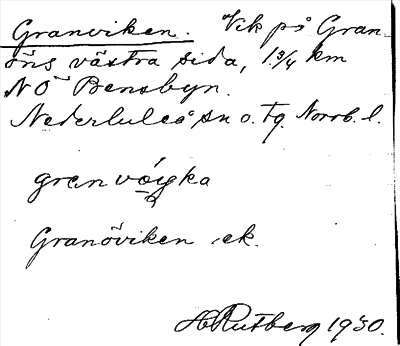 Granviken. Vik på Gran-
öns västra sida, 1 3/4 km
NO Bensbyn.
Nederluleå sn o. tg. Norrb. l.
granvöyka
Granöviken ek.
H Rutberg 1930.